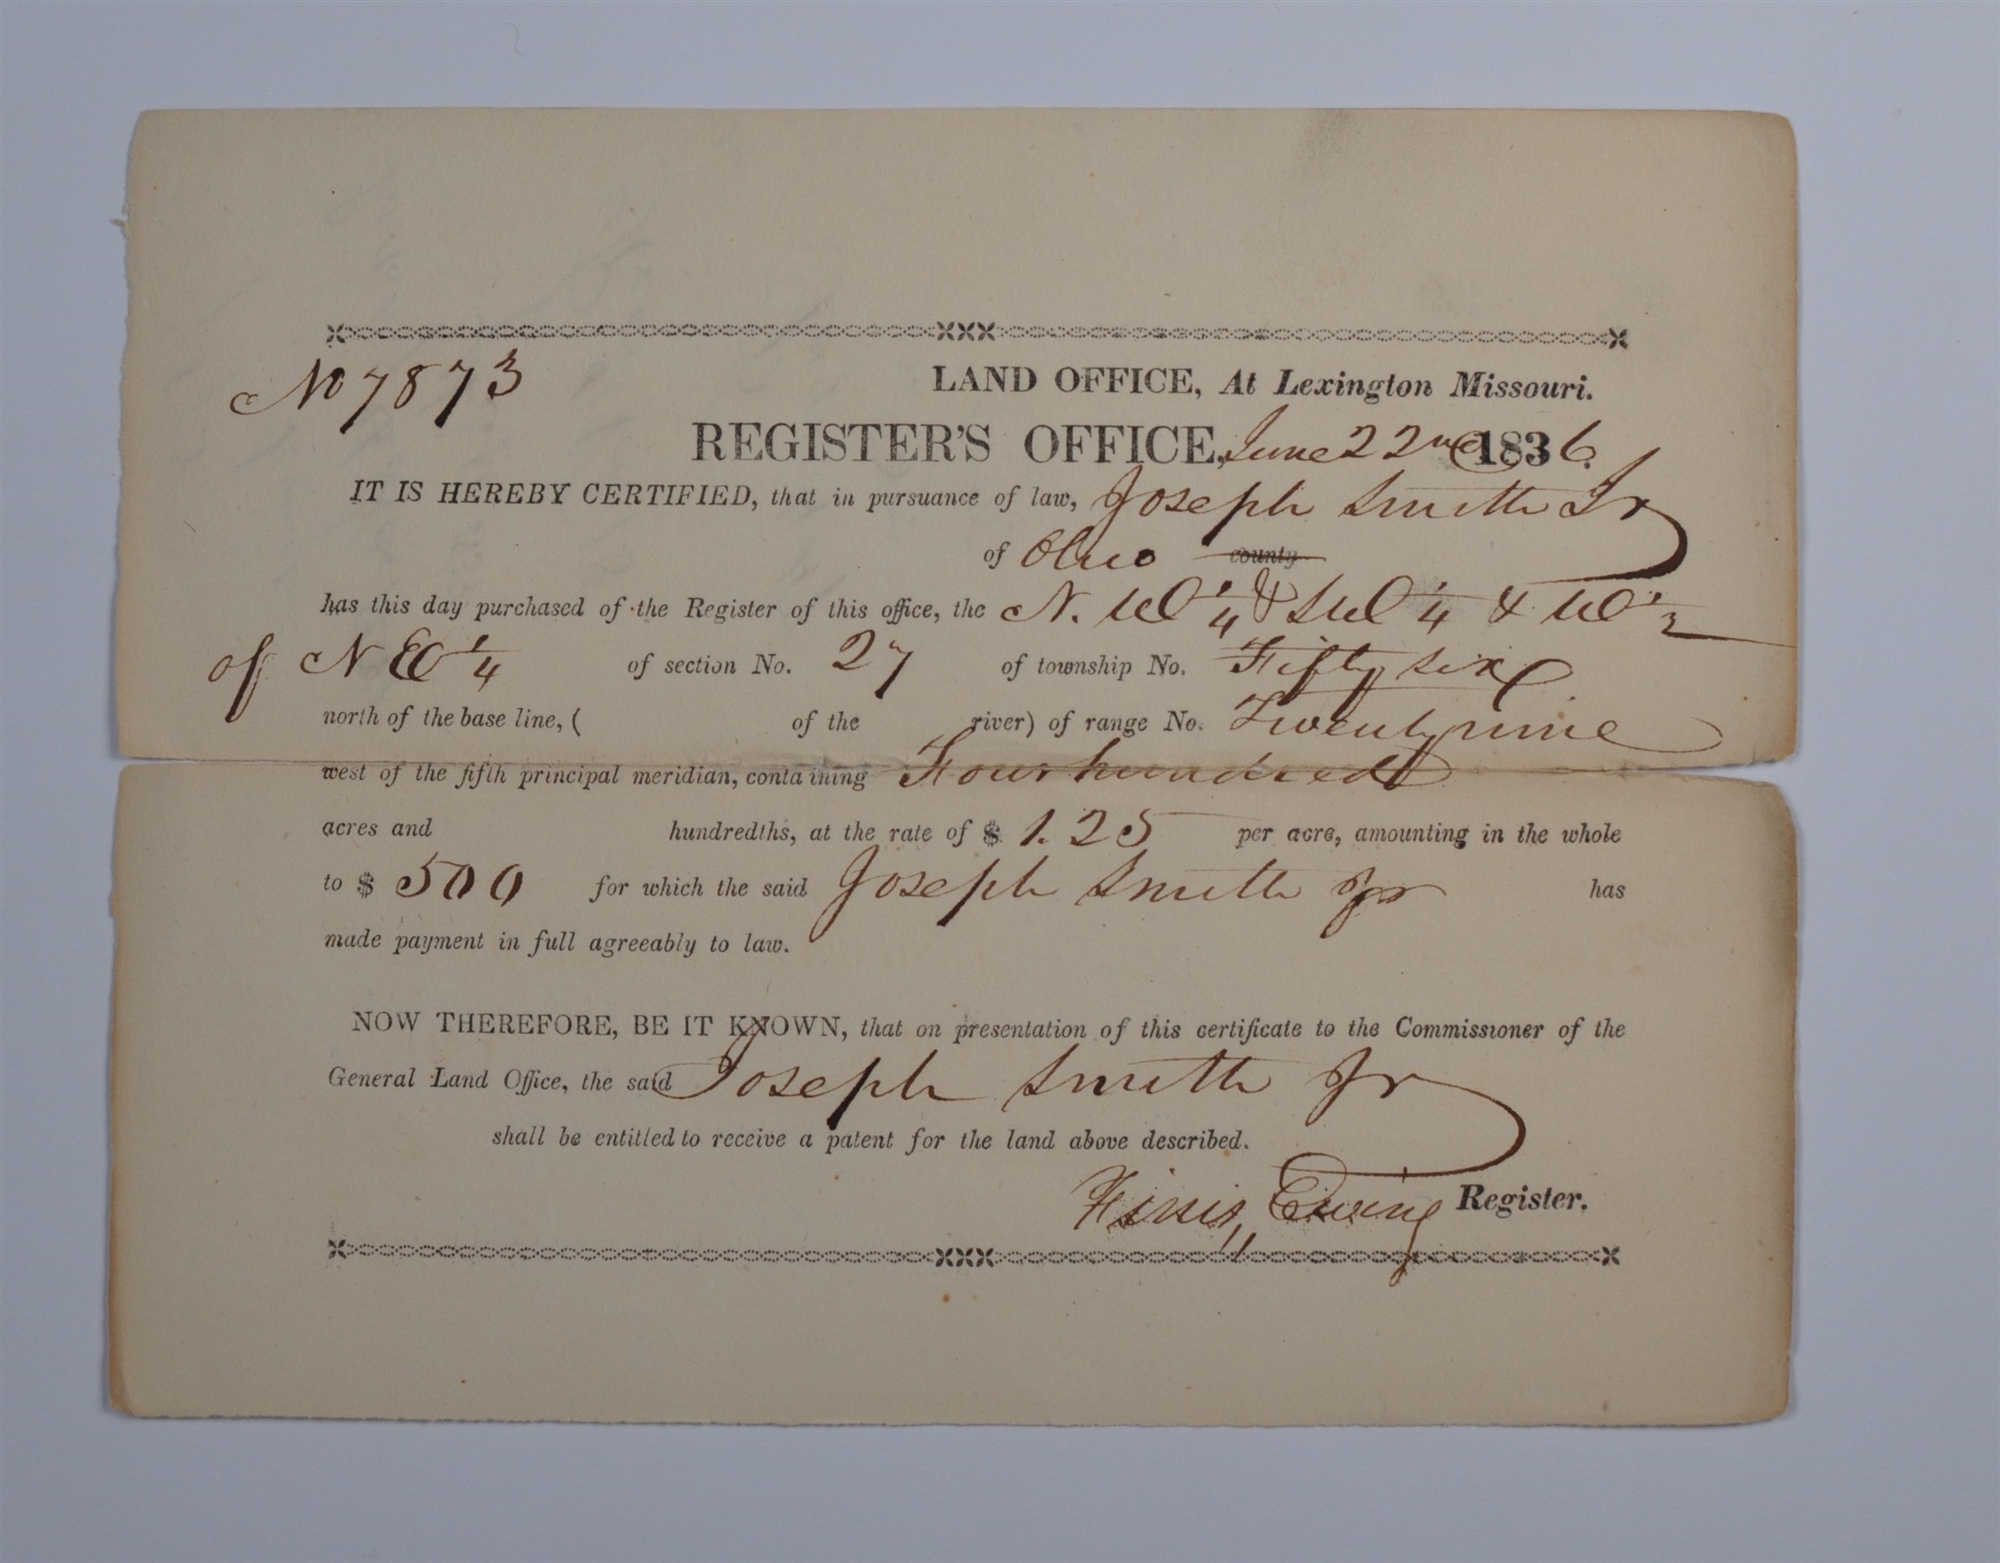 No 7873
LAND OFFICE, At Lexington Missouri.
REGISTER'S OFFICE, June 22nd 1836.
IT IS HEREBY CERTIFIED, that in pursuance of law, Joseph Smith Jr
of Ohio county
has this day purchased of the Register of this office, the N. W 1/4 & SW 1/4 & W 1/2
of N E 1/4 of section No. 27 of township No. Fifty six
north of the base line, ( of the river) of range No. Twenty nine
west of the fifth principal meridian, containing Four hundred
acres and hundredths, at the rate of $ 1.25 per acre, amounting in the whole
to $ 500 for which the said Joseph Smith Jr has
made payment in full agreeably to law.
NOW THEREFORE, BE IT KNOWN, that on presentation of this certificate to the Commissioner of the
General Land Office, the said Joseph Smith Jr
shall be entitled to receive a patent for the land above described.
Finis Ewing Register.